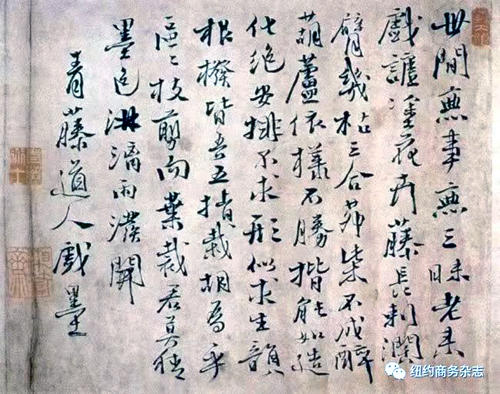 世間無事無三昧老来
戲謔塗花卉藤長刺濶
臂幾枯三合茆柴不成醉
葫蘆依樣不勝揩能如造
化絶安排不求形似求生韻
根撥皆吾五指栽胡為乎
區〻枝剪而葉裁君莫猜
墨色淋漓雨潑開
青藤道人戲墨
纽约商务杂志